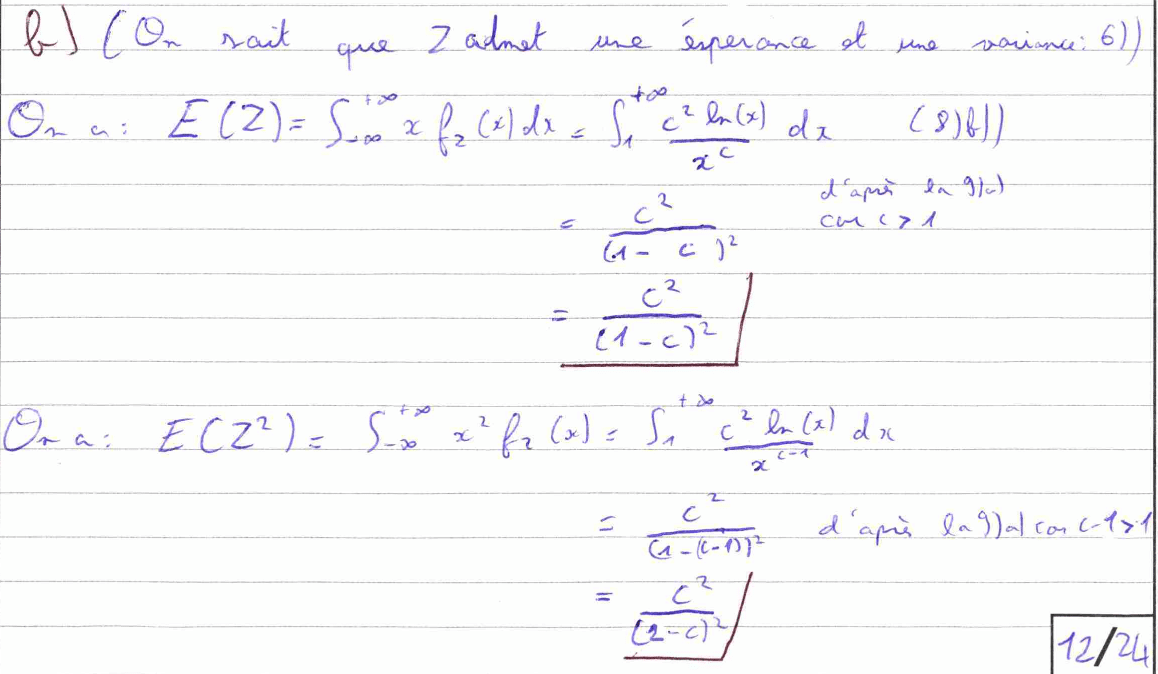 b) (On sait que Z admet une ésperance et une variance: 6))
On a: E(Z) = ∫_{-∞}^{+∞} x f_Z(x) dx = ∫_1^{+∞} \frac{c² ln(x)}{x^c} dx (8)b))
= \frac{c²}{(1 - c)²} d'après la 9)a) car c > 1
= \frac{c²}{(1-c)²}
On a: E(Z²) = ∫_{-∞}^{+∞} x² f_Z(x) = ∫_1^{+∞} \frac{c² ln(x)}{x^{c-1}} dx
= \frac{c²}{(1-(c-1))²} d'après la 9)a) car c-1>1
= \frac{c²}{(2-c)²}
12/24